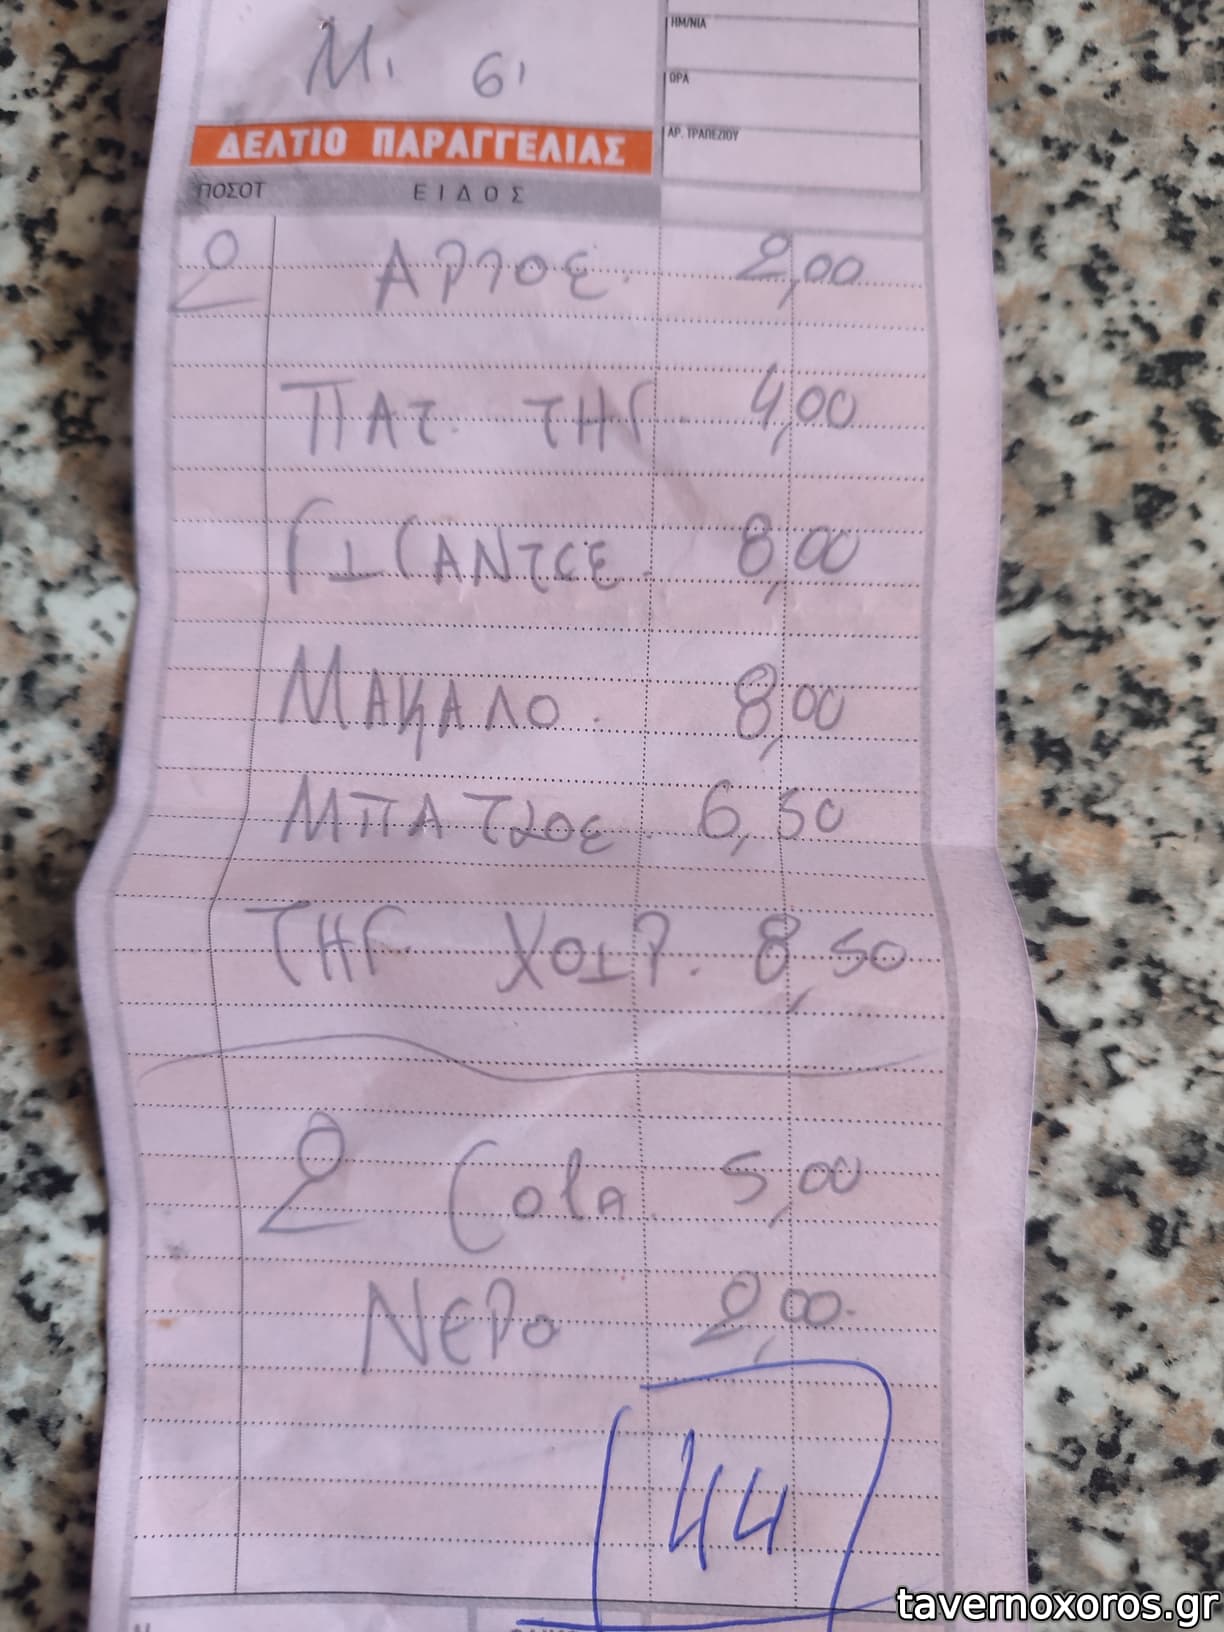 Μ. 6'
ΗΜ/ΝΙΑ
ΩΡΑ
ΑΡ. ΤΡΑΠΕΖΙΟΥ
ΔΕΛΤΙΟ ΠΑΡΑΓΓΕΛΙΑΣ
ΠΟΣΟΤ ΕΙΔΟΣ
2 ΑΡΤΟΣ. 2,00
ΠΑΤ. ΤΗΓ. 4,00
ΓΙΓΑΝΤΕΣ. 8,00
ΜΑΚΑΛΟ. 8,00
ΜΠΑΤΖΟΣ. 6,50
ΤΗΓ. ΧΟΙΡ. 8,50
2 Cola. 5,00
ΝΕΡΟ 2,00
44
tavernoxoros.gr